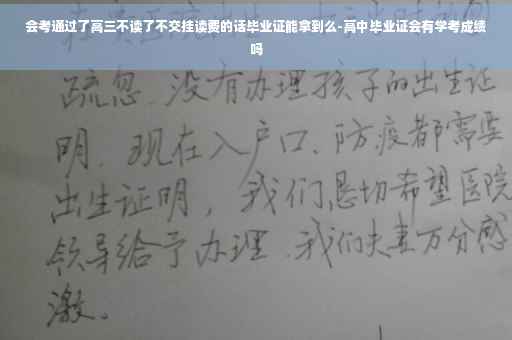 会考通过了高三不读了不交挂读费的话毕业证能拿到么-高中毕业证会有学考成绩
吗
疏忽、没有办理孩子的出生证
明、现在入户口、防疫都需要
出生证明，我们恳切希望医院
领导给予办理、我们夫妻万分感
激。